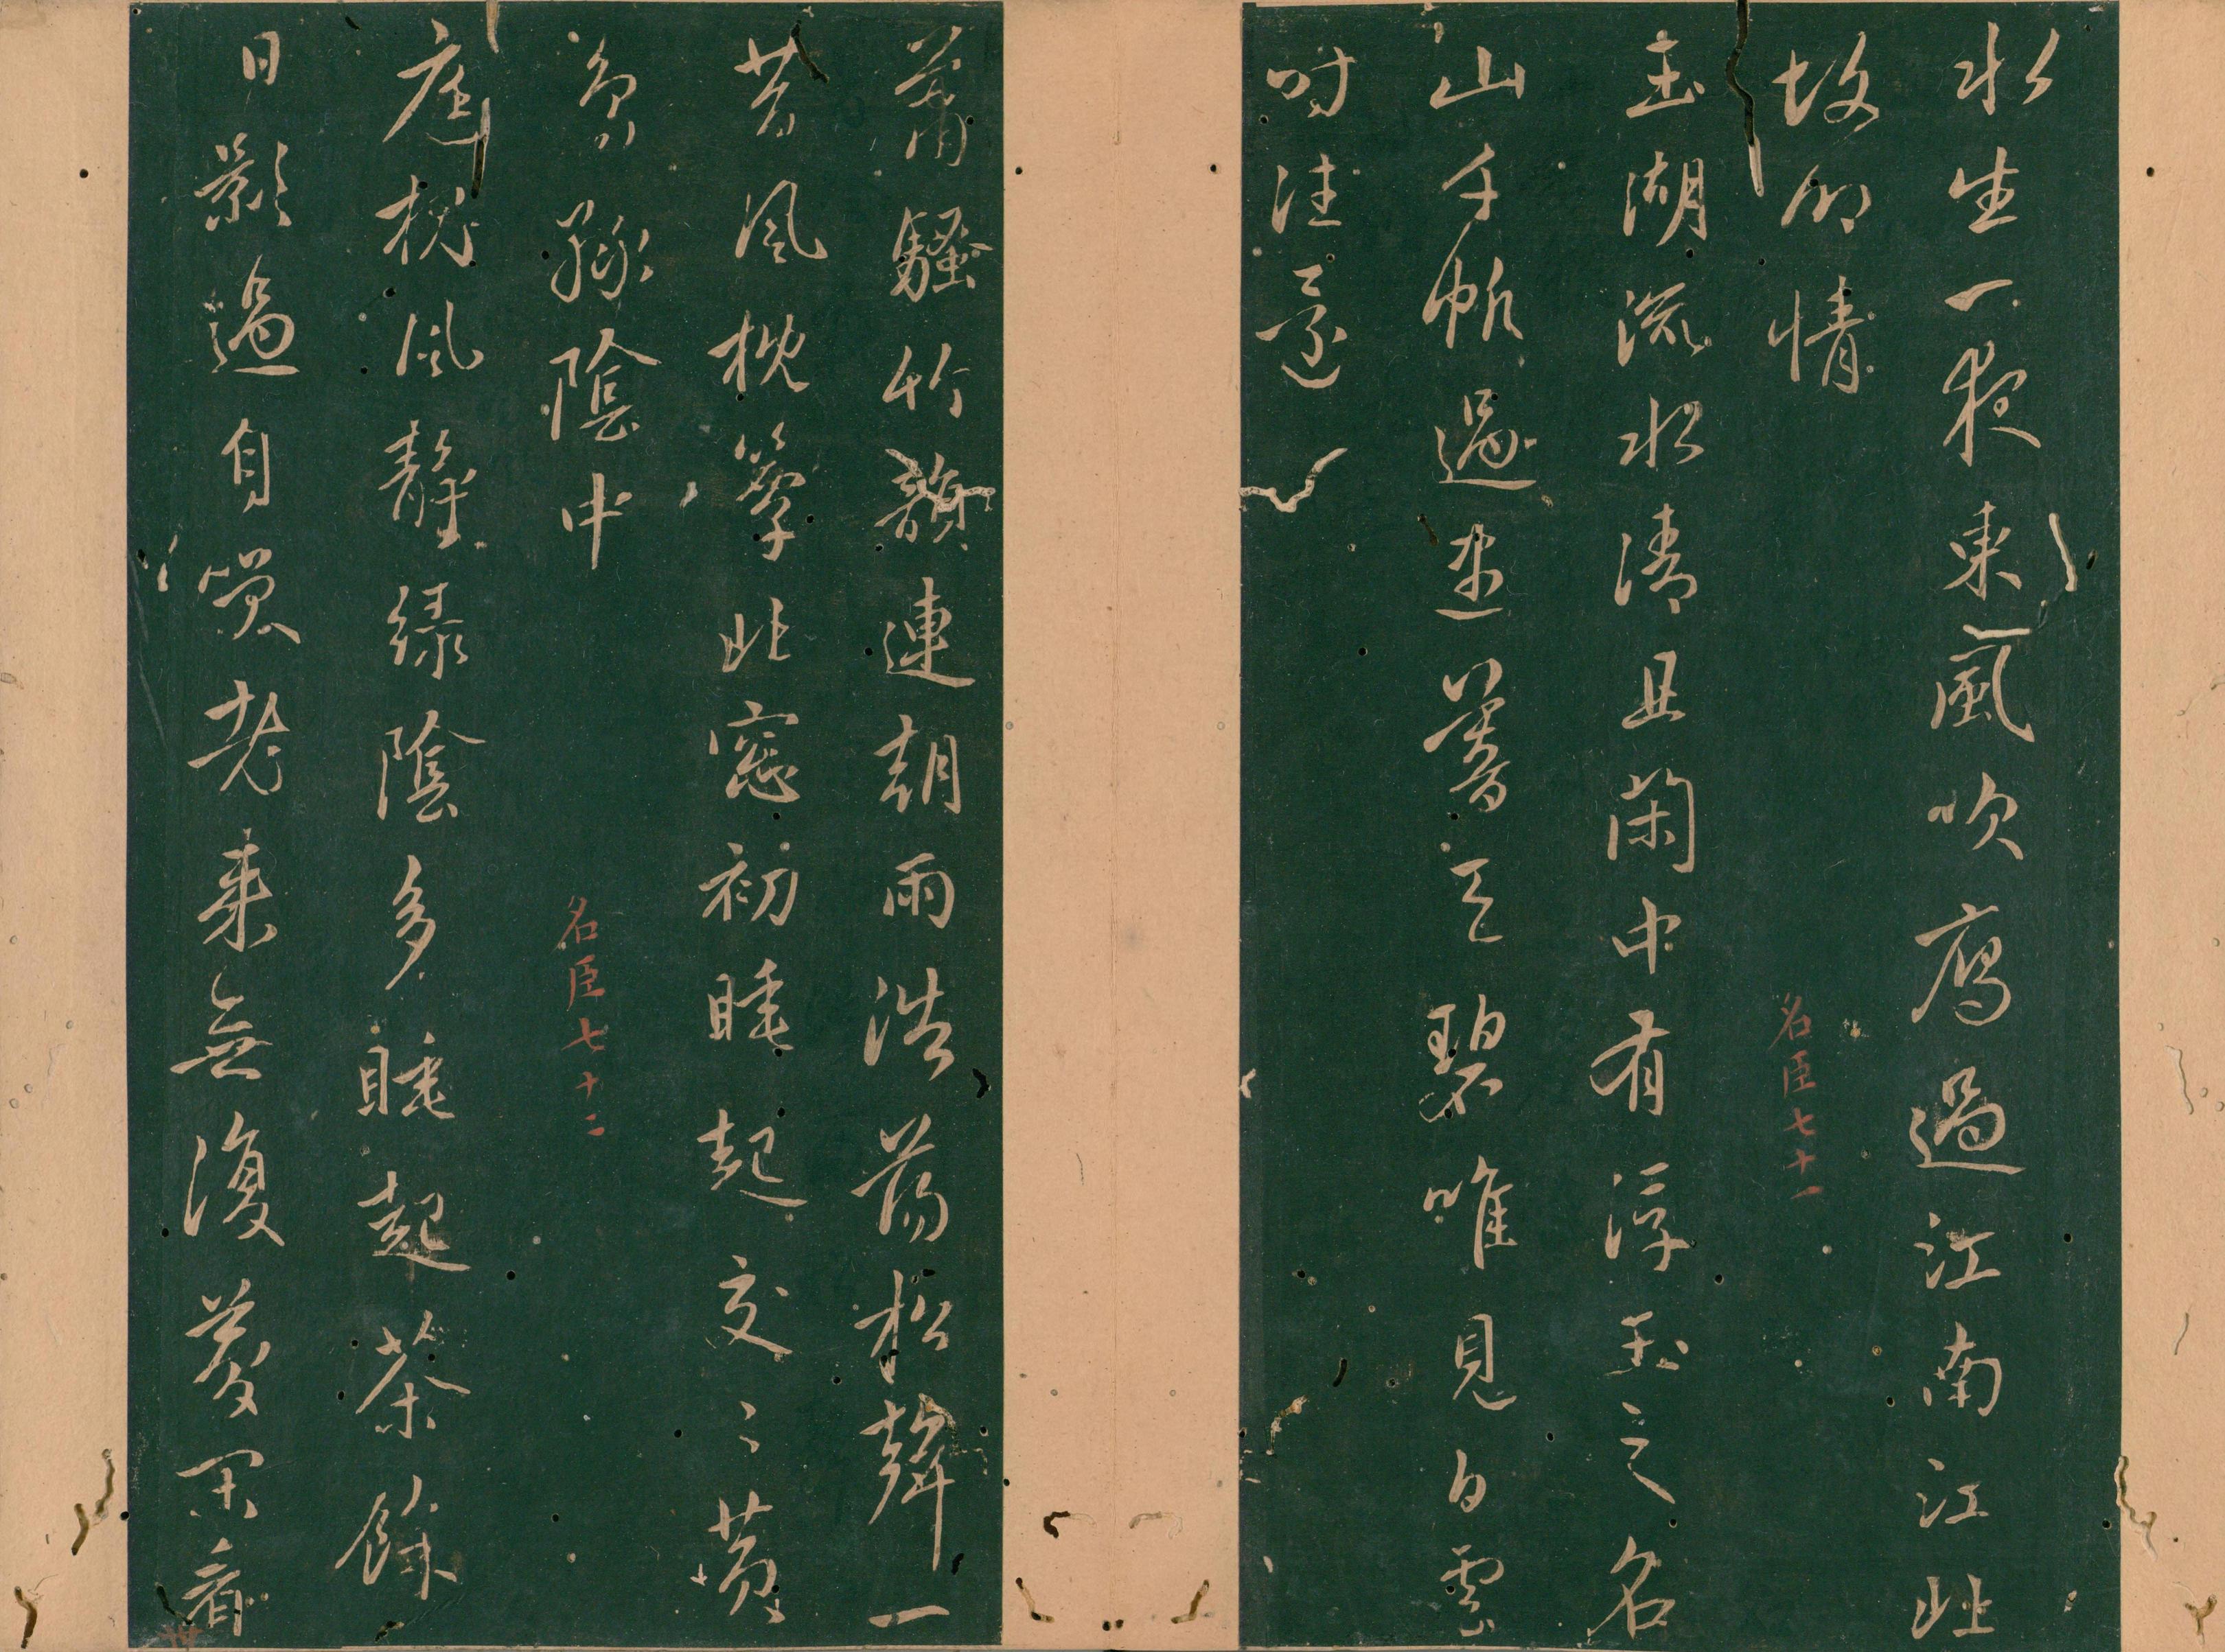 水生一夜東風吹雁過江南江北
故鄉情
名臣七十一
玉湖流水清且閑中有浮玉之名
山千帆過盡暮天碧唯見白雲
時往還
蕭騷竹韻連朝雨浩蕩松聲一
昔風枕簟北窓初睡起交〻黃
鳥綠陰中
名臣七十二
庭槐風靜綠陰多睡起茶餘
日影過自笑老来無復夢閑看